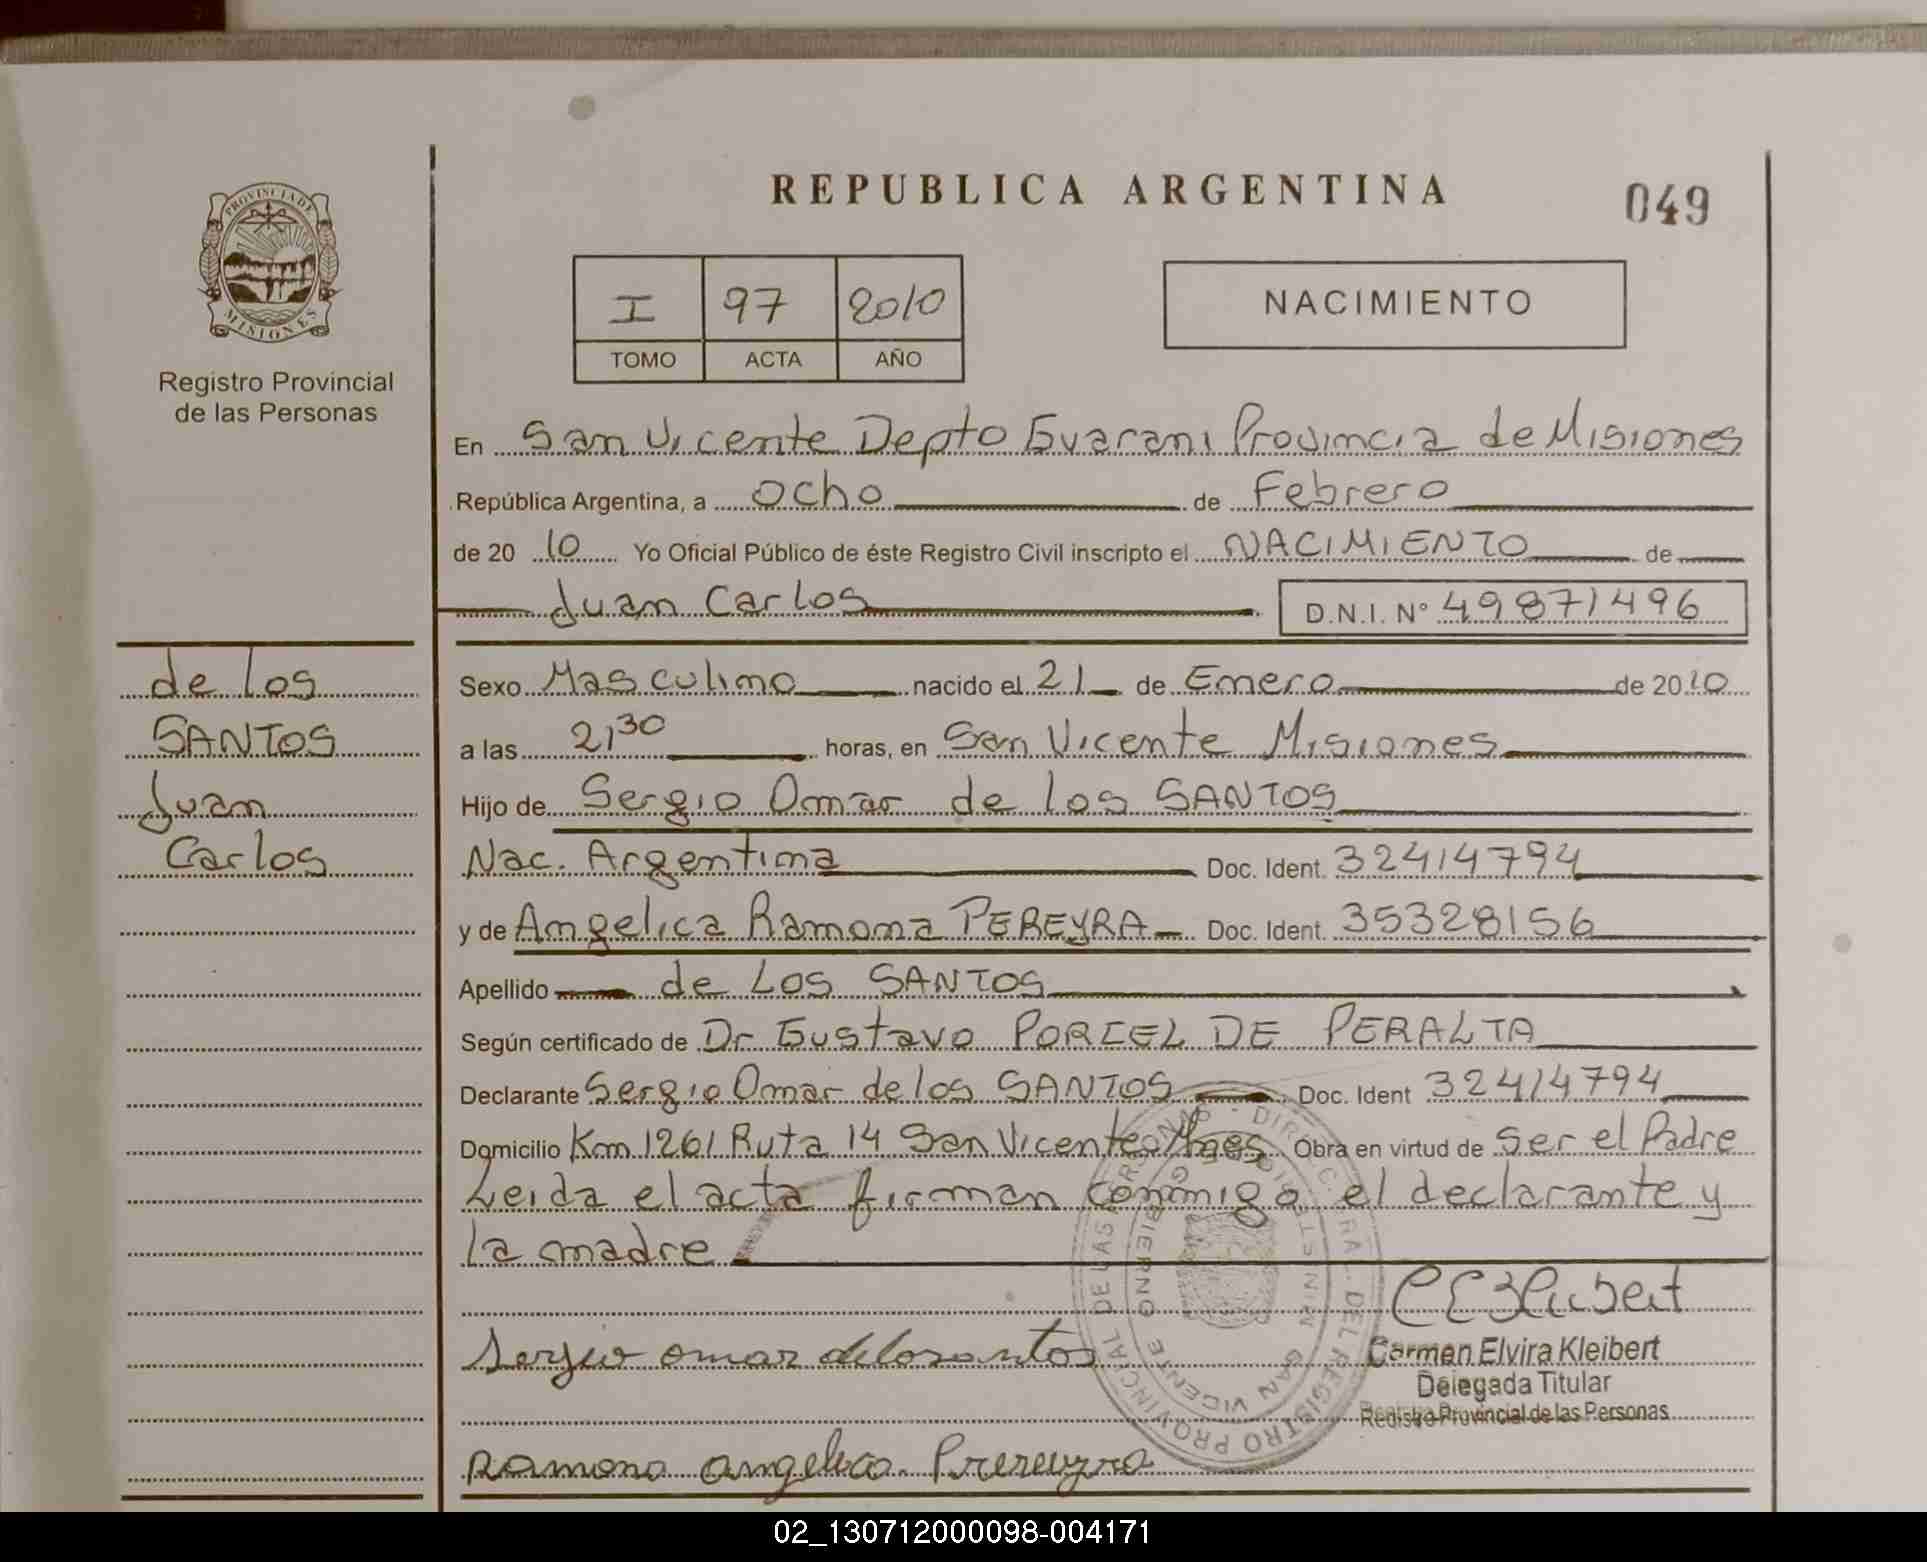 REPUBLICA ARGENTINA
049
PROVINCIA DE
MISIONES
Registro Provincial
de las Personas
I 97 2010
TOMO ACTA AÑO
NACIMIENTO
En San Vicente Depto Guarani Provincia de Misiones
República Argentina, a ocho de Febrero
de 20 10 Yo Oficial Público de éste Registro Civil inscripto el NACIMIENTO de
Juan Carlos D.N.I. Nº 49871496
de los
SANTOS
Juan
Carlos
Sexo Masculino nacido el 21 de Enero de 2010
a las 21,30 horas, en San Vicente Misiones
Hijo de Sergio Omar de los SANTOS
Nac. Argentina Doc. Ident. 32414794
y de Angelica Ramona PEREYRA Doc. Ident. 35328156
Apellido de LOS SANTOS
Según certificado de Dr Gustavo PORCEL DE PERALTA
Declarante Sergio Omar de los SANTOS Doc. Ident 32414794
Domicilio Km 1261 Ruta 14 San Vicente Mnes Obra en virtud de Ser el Padre
Leida el acta firman conmigo el declarante y
la madre
Sergio omar delosantos
Carmen Elvira Kleibert
Delegada Titular
Registro Provincial de las Personas
Ramona angelica
DIREC. GRAL. DEL REGISTRO PROVINCIAL DE LAS PERSONAS
MINISTERIO DE GOBIERNO
SAN VICENTE
02_130712000098-004171